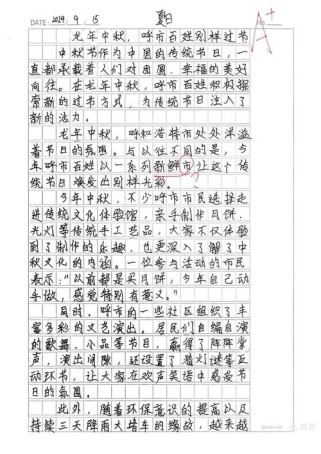 DATE: 2024. 9. 15
A+
龙年中秋，呼市百姓别样过节
中秋节作为中国的传统节日，一
直都承载着人们对团圆、幸福的美好
向往。在龙年中秋，呼市百姓积极探
索新的过节方式，为传统节日注入了
新的活力。
龙年中秋，呼和浩特市处处洋溢
着节日的氛围。与以往不同的是，今
年呼市百姓以一系列新鲜事让这个传
统节日焕发出别样光彩。
今年中秋，不少呼市市民选择走
进传统文化体验馆，亲手制作月饼、
花灯等传统手工艺品，大家不仅体验
到了制作的乐趣，也更深入了解了中
秋文化的内涵。一位参与活动的市民
表示："以前都是买月饼，今年自己动
手做，感觉特别有意义。"
同时，呼市的一些社区组织了丰
富多彩的文艺演出。居民们自编自演
的歌舞、小品等节目，赢得了阵阵掌
声，演出间隙，还设置了猜灯谜等互
动环节，让大家在欢声笑语中感受节
日的氛围。
此外，随着环保意识的提高以及
持续三天降雨大堵车的缘故，越来越